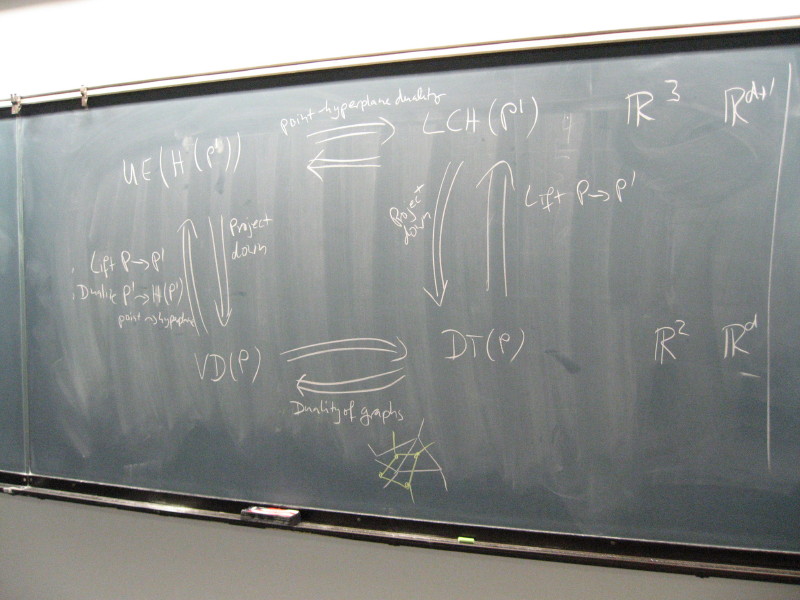 point-hyperplane duality
UE(H(P'))
LCH(P')
ℝ³
ℝᵈ⁺¹
Lift P→P'
Dualize P'→H(P')
point → hyperplane
Project
down
Project
down
Lift P→P'
VD(P)
DT(P)
ℝ²
ℝᵈ
Duality of graphs